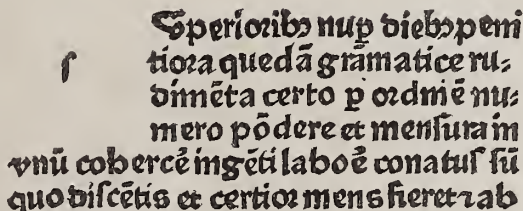 Superioribꝯ nuꝑ diebꝯ peni
ſ tiora quedã grãmatice ru⸗
dimẽta certo ꝑ ordinẽ nu⸗
mero põdere et menſura in
vnũ cohercẽ ingẽti laboẽ conatuſ ſũ
quo diſcẽtis et certior mens fieret ⁊ ab